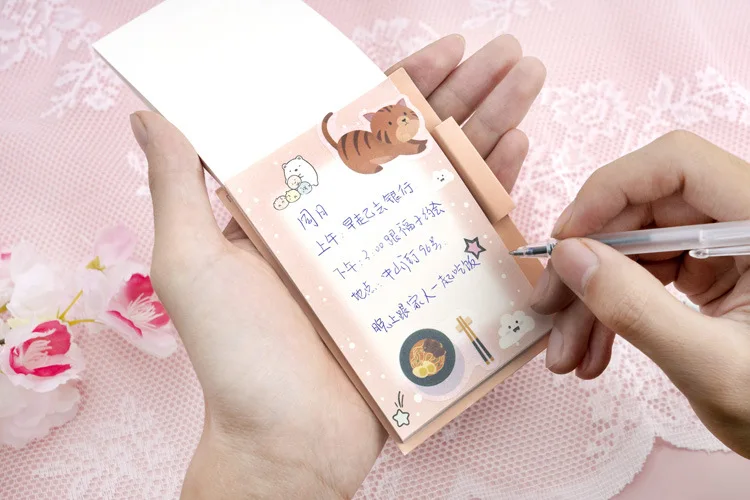 周月
上午:早起去银行
下午:2:00跟福子约会
地点:中山街96号.
晚上跟家人一起吃饭